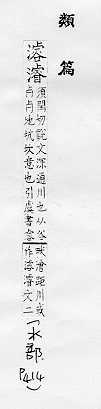 類篇
濬
須閏切說文深通川也从谷
地坑坎意也引虞書
畎澮距川或
作濬文二
(水部
P414)